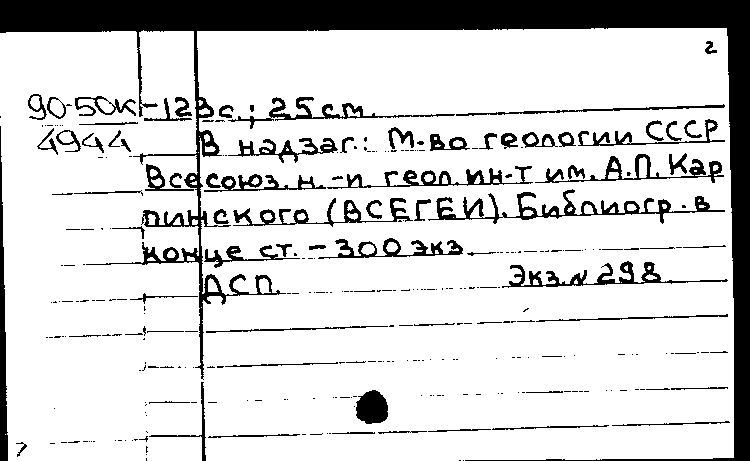 2
90-50к -123с.; 25 см.
4944 В надзаг.: М-во геологии СССР
Всесоюз. н.-и. геол. ин-т им. А.П. Кар
пинского (ВСЕГЕИ). Библиогр. в
конце ст. - 300 экз.
ДСП. Экз. № 298